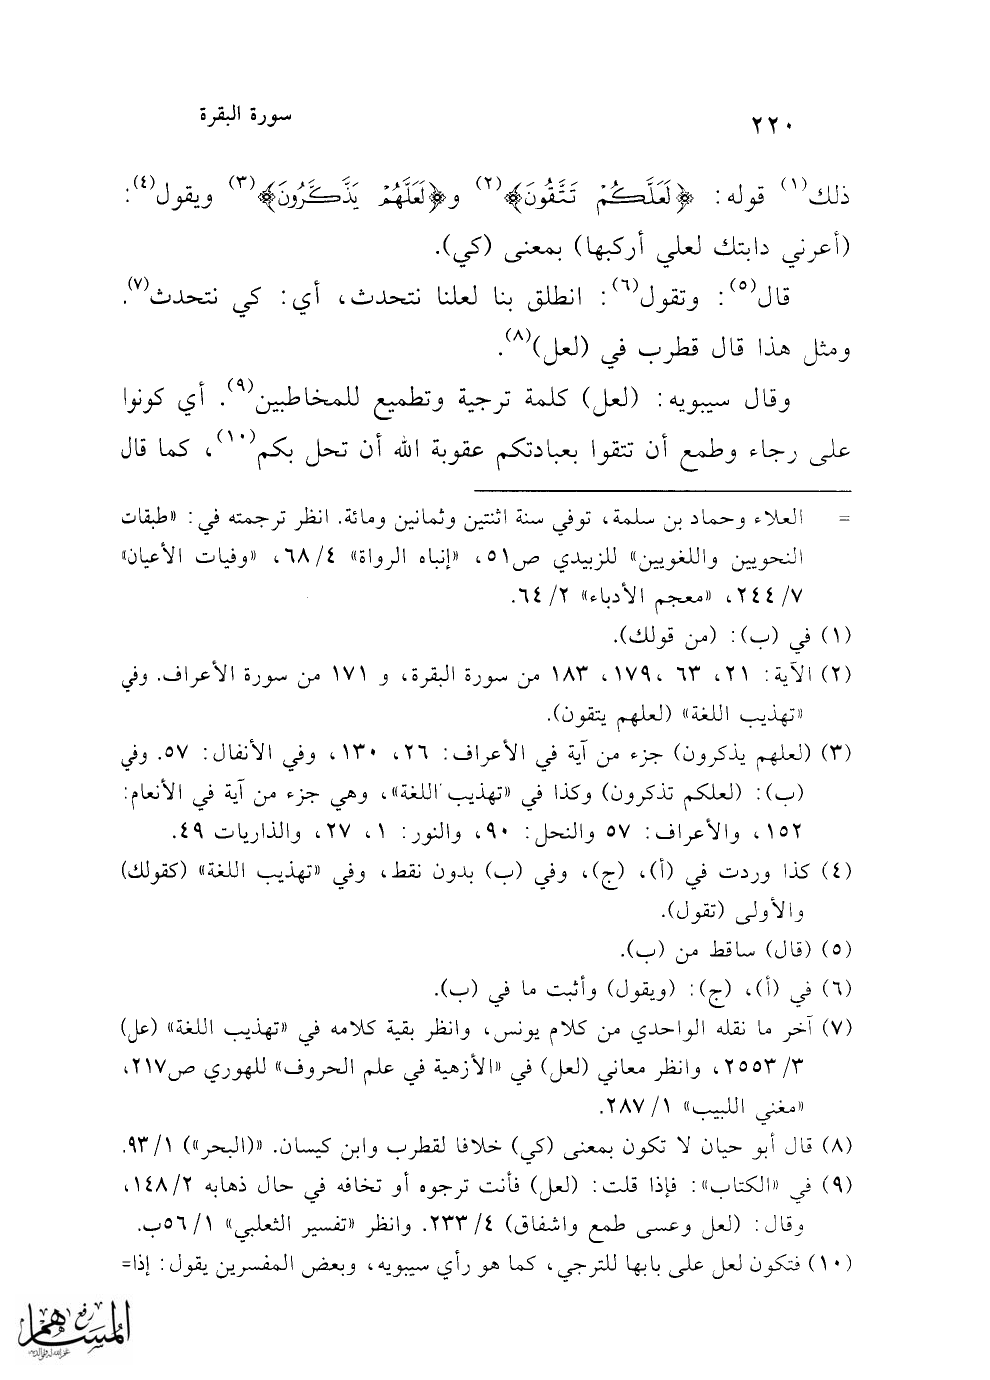 ٢٢٠
سورة البقرة
ذلك(١) قوله: ﴿لَعَلَّكُمْ تَتَّقُونَ﴾(٢) و﴿لَعَلَّهُمْ يَذَّكَّرُونَ﴾(٣) ويقول(٤):
(أعرني دابتك لعلي أركبها) بمعنى (كي).
قال(٥): وتقول(٦): انطلق بنا لعلنا نتحدث، أي: كي نتحدث(٧).
ومثل هذا قال قطرب في (لعل)(٨).
وقال سيبويه: (لعل) كلمة ترجية وتطميع للمخاطبين(٩). أي كونوا
على رجاء وطمع أن تتقوا بعبادتكم عقوبة الله أن تحل بكم(١٠)، كما قال
= العلاء وحماد بن سلمة، توفي سنة اثنتين وثمانين ومائة. انظر ترجمته في: «طبقات
النحويين واللغويين» للزبيدي ص٥١، «إنباه الرواة» ٤/ ٦٨، «وفيات الأعيان»
٧/ ٢٤٤، «معجم الأدباء» ٢/ ٦٤.
(١) في (ب): (من قولك).
(٢) الآية: ٢١، ٦٣ ،١٧٩، ١٨٣ من سورة البقرة، و ١٧١ من سورة الأعراف. وفي
«تهذيب اللغة» (لعلهم يتقون).
(٣) (لعلهم يذكرون) جزء من آية في الأعراف: ٢٦، ١٣٠، وفي الأنفال: ٥٧. وفي
(ب): (لعلكم تذكرون) وكذا في «تهذيب اللغة»، وهي جزء من آية في الأنعام:
١٥٢، والأعراف: ٥٧ والنحل: ٩٠، والنور: ١، ٢٧، والذاريات ٤٩.
(٤) كذا وردت في (أ)، (ج)، وفي (ب) بدون نقط، وفي «تهذيب اللغة» (كقولك)
والأولى (تقول).
(٥) (قال) ساقط من (ب).
(٦) في (أ)، (ج): (ويقول) وأثبت ما في (ب).
(٧) آخر ما نقله الواحدي من كلام يونس، وانظر بقية كلامه في «تهذيب اللغة» (عل)
٣/ ٢٥٥٣، وانظر معاني (لعل) في «الأزهية في علم الحروف» للهوري ص٢١٧،
«مغني اللبيب» ١/ ٢٨٧.
(٨) قال أبو حيان لا تكون بمعنى (كي) خلافا لقطرب وابن كيسان. «(البحر») ١/ ٩٣.
(٩) في «الكتاب»: فإذا قلت: (لعل) فأنت ترجوه أو تخافه في حال ذهابه ٢/ ١٤٨،
وقال: (لعل وعسى طمع واشفاق) ٤/ ٢٣٣. وانظر «تفسير الثعلبي» ١/ ٥٦ب.
(١٠) فتكون لعل على بابها للترجي، كما هو رأي سيبويه، وبعض المفسرين يقول: إذا=
رفع
المساهم